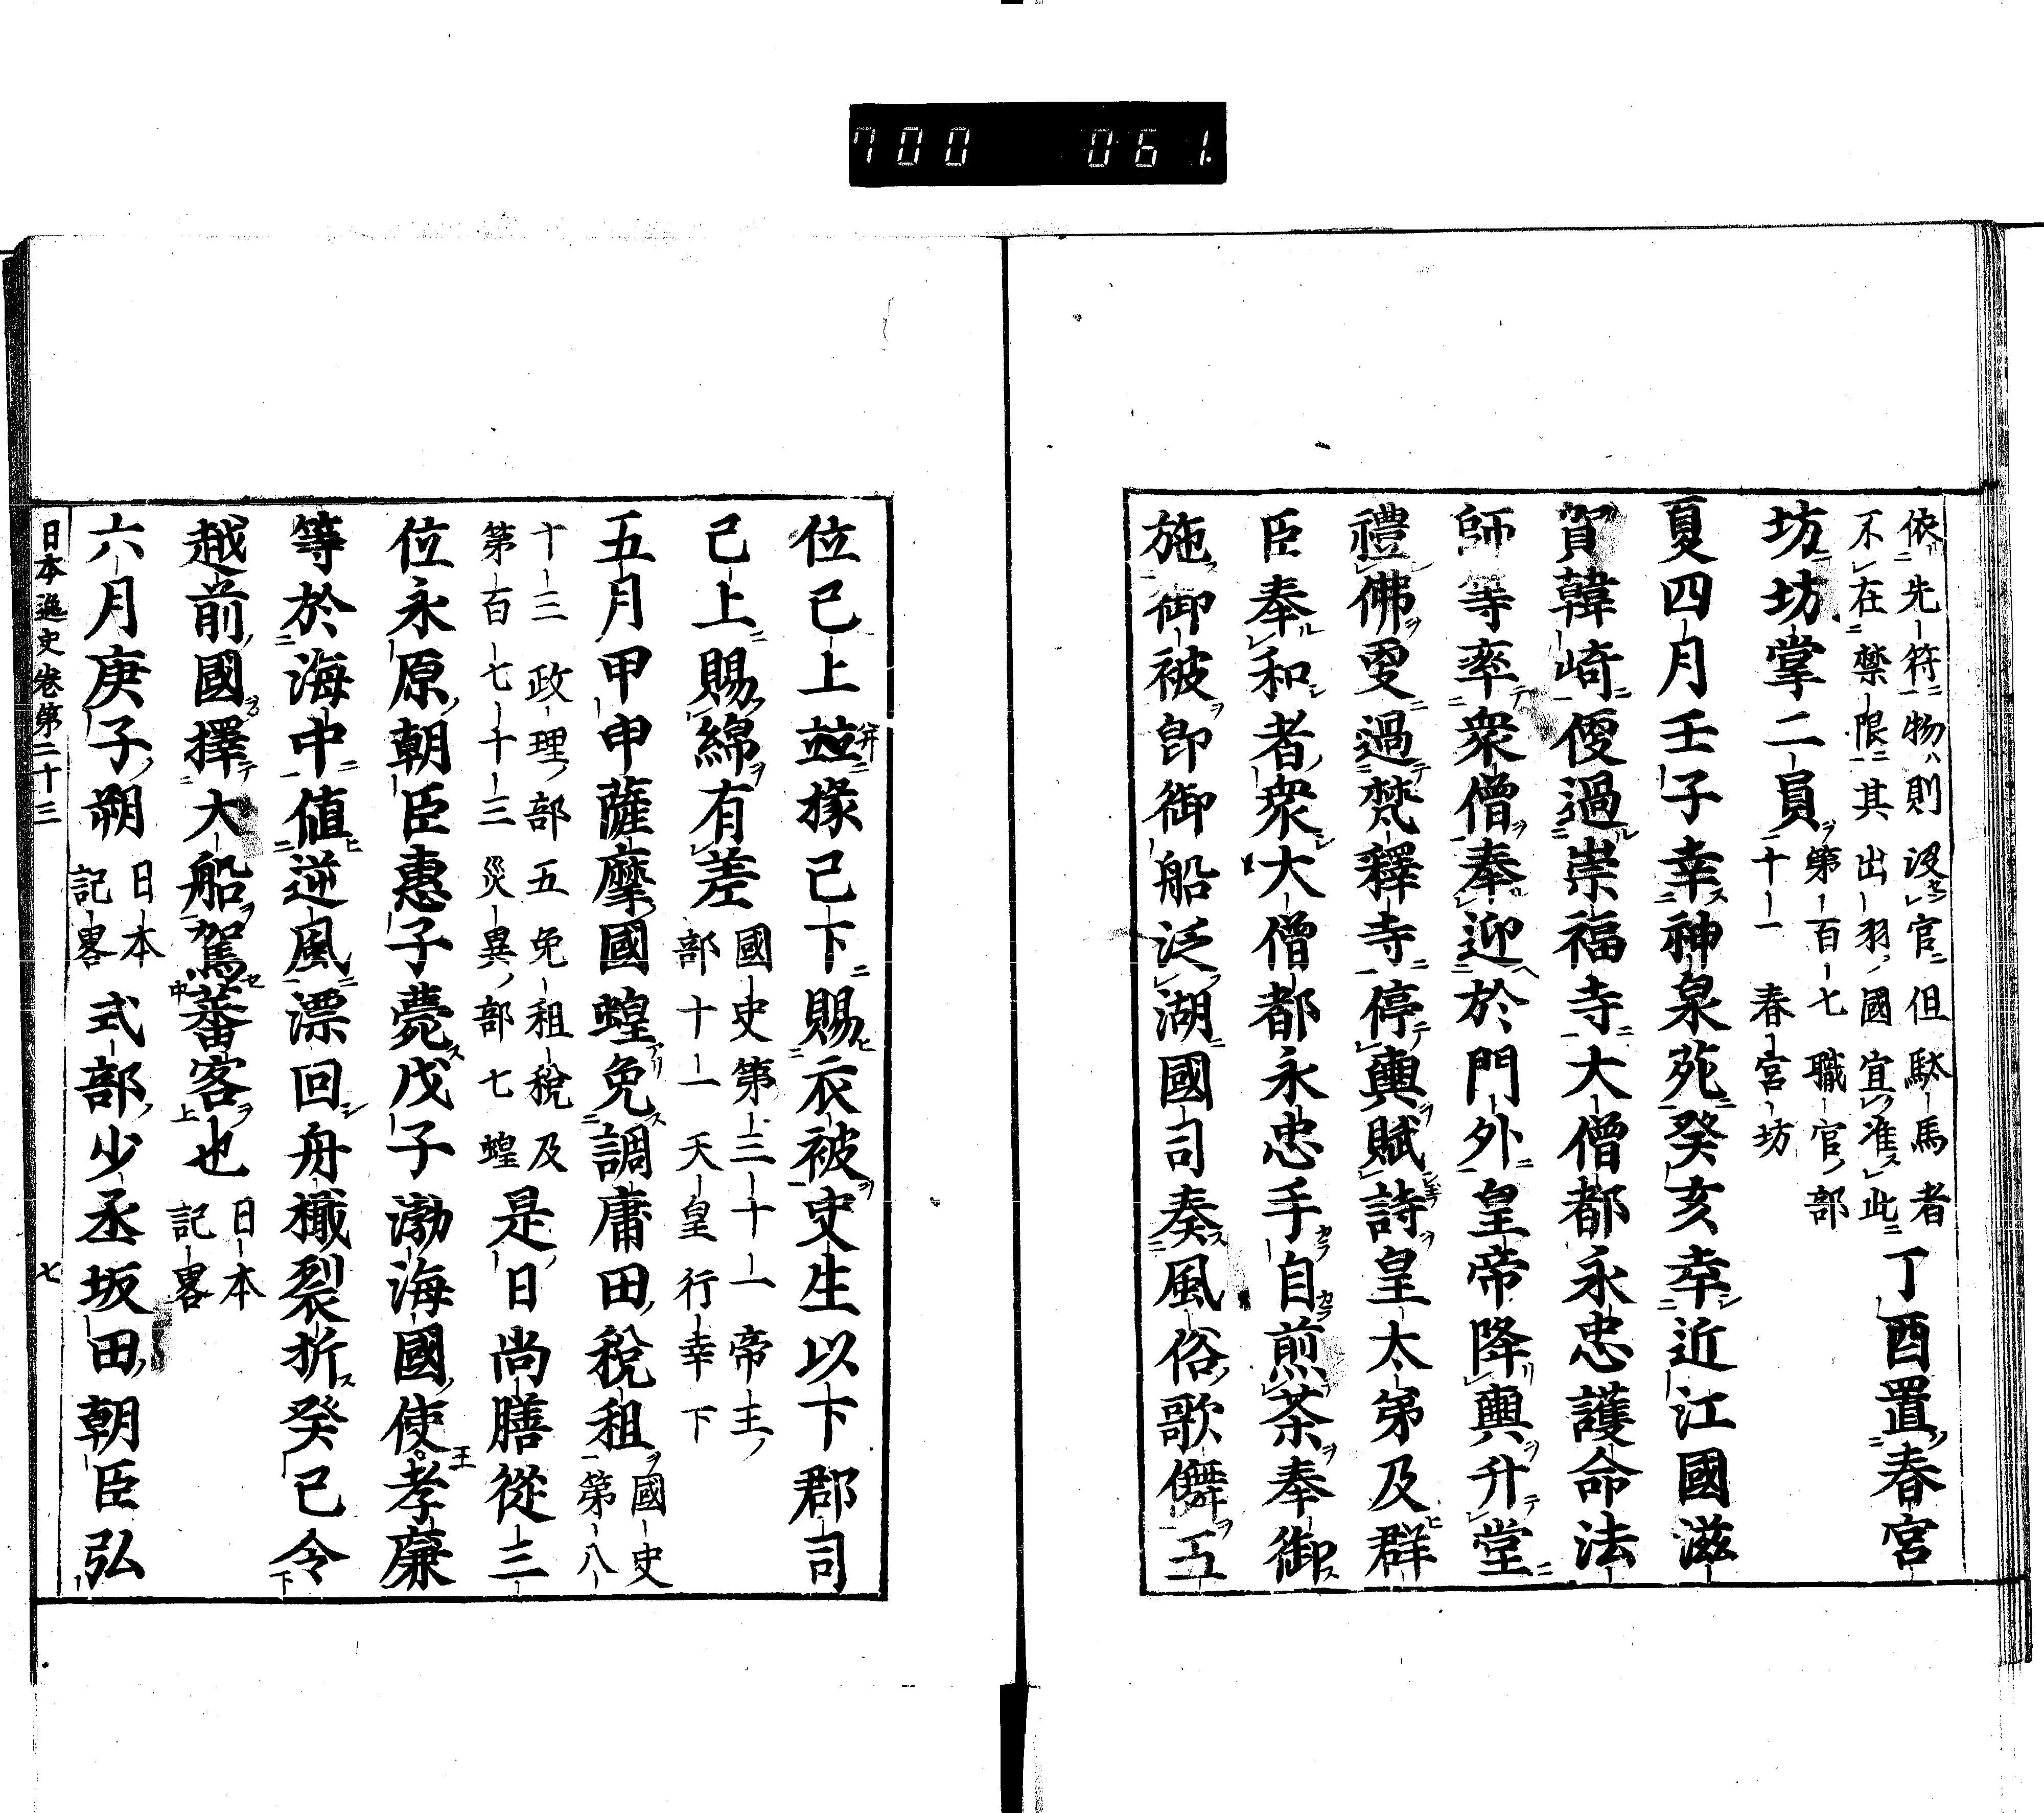 700 061.
依先符物則没官但駄馬者
不在禁限其出羽國宜准此
丁酉置春宮
坊坊掌二員
第百七職官部
十一春宮坊
夏四月壬子幸神泉苑癸亥幸近江國滋
賀韓崎便過崇福寺大僧都永忠護命法
師等率衆僧奉迎於門外皇帝降輿升堂
禮佛更過梵釋寺停輿賦詩皇太弟及群
臣奉和者衆大僧都永忠手自煎茶奉御
施御被即御船泛湖國司奏風俗歌儛五
位已上並掾已下賜衣被史生以下郡司
已上賜綿有差
國史第三十一帝王
部十一天皇行幸下
五月甲申薩摩國蝗免調庸田税租
國史
第八
十三政理部五免租税及
第百七十三災異部七蝗
是日尚膳從三
位永原朝臣惠子薨戊子渤海國使孝廉
等於海中值逆風漂回舟檝裂折癸巳令
越前國擇大船駕蕃客也
日本
記畧
六月庚子朔
日本
記畧
式部少丞坂田朝臣弘
日本逸史卷第二十三 七